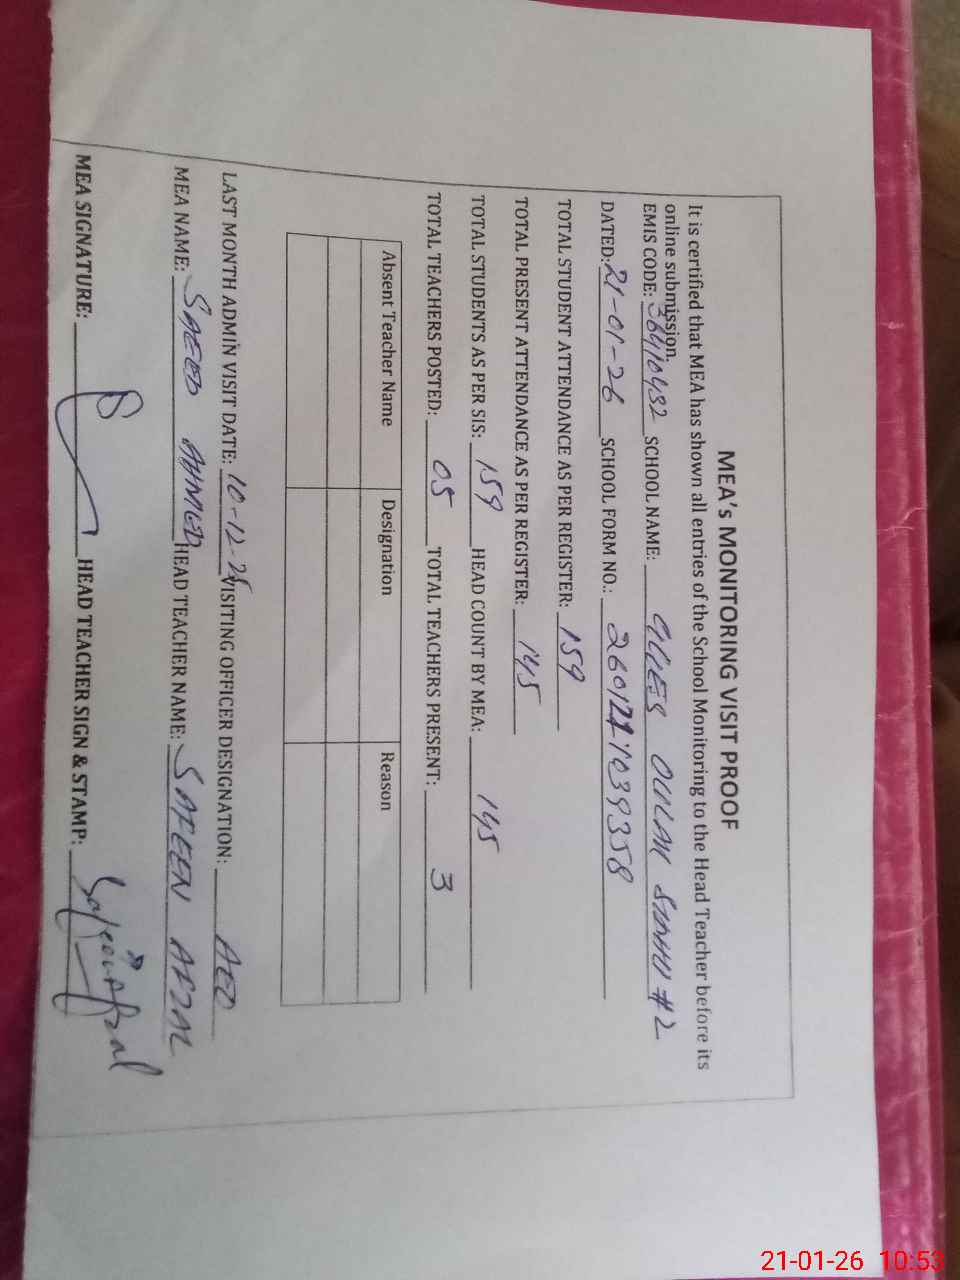 MEA's MONITORING VISIT PROOF
It is certified that MEA has shown all entries of the School Monitoring to the Head Teacher before its
online submission.
EMIS CODE: 36410432 SCHOOL NAME: SINDHU #2
DATED: 21-01-26 SCHOOL FORM NO.: 260121
TOTAL STUDENT ATTENDANCE AS PER REGISTER: 159
TOTAL PRESENT ATTENDANCE AS PER REGISTER: 145
TOTAL STUDENTS AS PER SIS: 159 HEAD COUNT BY MEA: 145
TOTAL TEACHERS POSTED: 05 TOTAL TEACHERS PRESENT: 3
Absent Teacher Name Designation Reason
LAST MONTH ADMIN VISIT DATE: 10-12-25 VISITING OFFICER DESIGNATION: AEO
MEA NAME: SAEED AHMED HEAD TEACHER NAME: SAFEEN AFZAL
MEA SIGNATURE: HEAD TEACHER SIGN & STAMP: Safeen Afzal
21-01-26 10:53